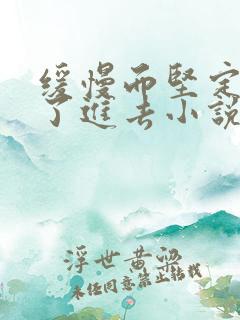 缓慢而坚定
了进去小说
浮世黄粱
未经同意禁止转载